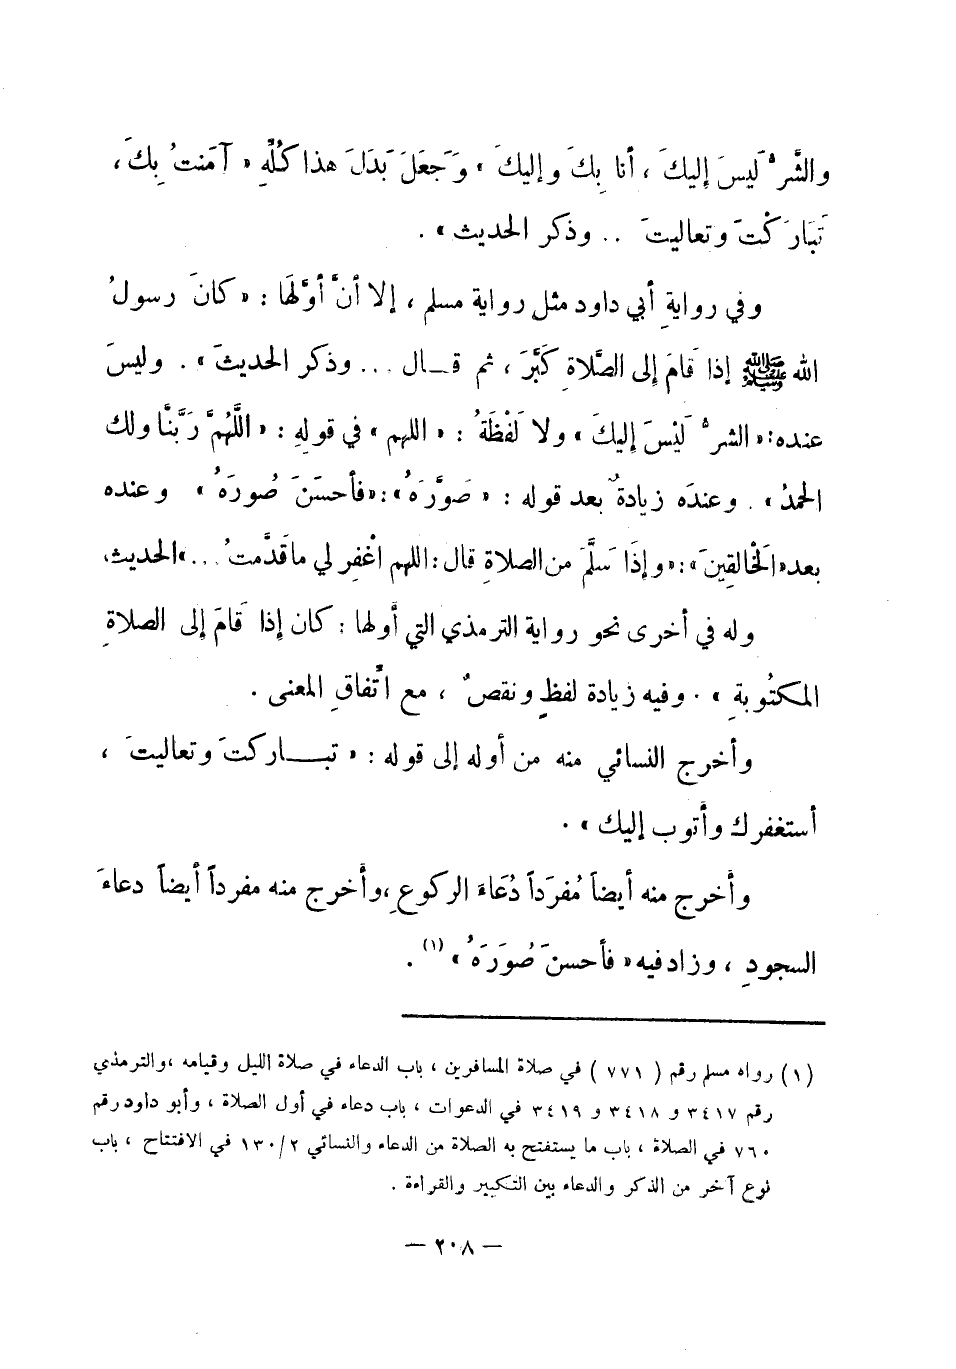 والشَّرُّ لَيسَ إليكَ ، أنا بِكَ وإليكَ » وَجَعَلَ بَدَلَ هذا كُلِّهِ « آمَنتُ بِكَ ،
تَبَارَكْتَ وتعاليتَ .. وذكر الحديث » .
وفي روايةِ أبي داود مثل رواية مسلم ، إلا أنَّ أوَّلَهَا : « كانَ رسولُ
الله ﷺ إذا قَامَ إلى الصَّلاةِ كَبَّرَ ، ثم قـال ... وذكر الحديثَ » . وليسَ
عنده: « الشرُّ لَيْسَ إليكَ » ولا لَفْظَةُ : « اللهم » في قولِهِ : « اللَّهُمَّ رَبَّنَا ولك
الحمدُ » . وعندَه زيادةٌ بعد قوله : « صَوَّرَهُ»:«فأحسَنَ صُورَهُ » وعنده
بعد«الَخْالقِينَ»:«وإذَا سَلَّمَ من الصلاةِ قال: اللهم اغْفِر لي ما قَدَّمتُ ...»الحديث،
وله في أخرى نحو رواية الترمذي التي أولها : كان إذا قَامَ إلى الصلاةِ
المكتُوبةِ » . وفيه زيادة لفظٍ ونقصٌ ، مع اتَّفاقِ المعنى .
وأخرج النسائي منه من أوله إلى قوله : « تبـــاركتَ وتعاليتَ ،
أستغفرك وأتوب إليك » .
وأخرج منه أيضاً مُفرَداً دُعَاءَ الركوعِ ،وأخرج منه مفرداً أيضاً دعاءَ
السجودِ ، وزاد فيه « فأحسنَ صُورَهُ » (١) .
(١) رواه مسلم رقم ( ٧٧١ ) في صلاة المسافرين ، باب الدعاء في صلاة الليل وقيامه ، والترمذي
رقم ٣٤١٧ و ٣٤١٨ و ٣٤١٩ في الدعوات ، باب دعاء في أول الصلاة ، وأبو داود رقم
٧٦٠ في الصلاة ، باب ما يستفتح به الصلاة من الدعاء والنسائي ١٣٠/٢ في الافتتاح ، باب
نوع آخر من الذكر والدعاء بين التكبير والقراءة .
— ٢٠٨ —